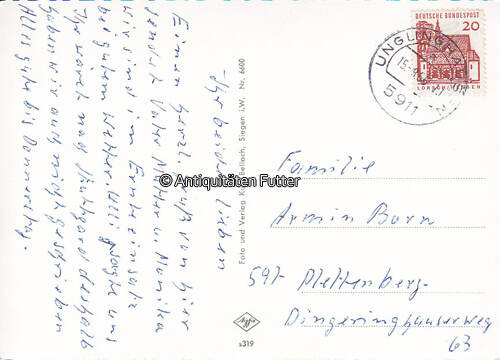 Ihr beiden Lieben
Einen herzl. Gruß von hier
sendet Vater Mutter u. Monika
Wir sind im Ernteeinsatz
bei gutem Wetter. Ulli sagte uns
Ihr wäret nach Stuttgart deshalb
haben wir auch nicht geschrieben
Alles gute bis Donnerstag.
Foto und Verlag Bellach, Siegen i.W. Nr. 6600
© Antiquitäten Futter
s319
DEUTSCHE BUNDESPOST
20
LORSCH/HESSEN
UNGLINGHAUSEN
5911
Familie
Armin Born
597 Plettenberg-
Dingeringhauserweg
63